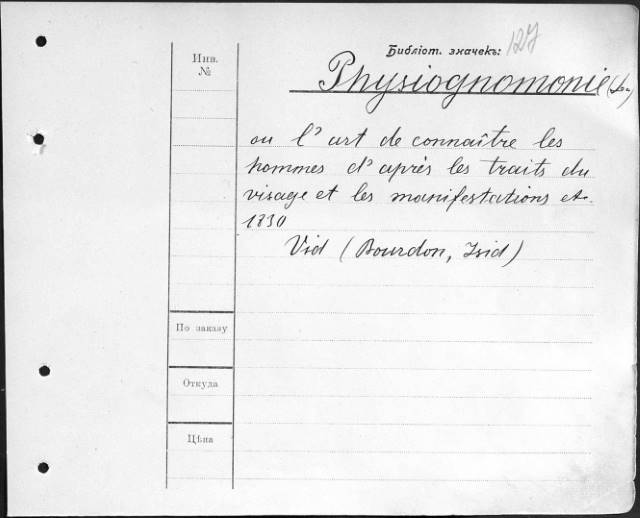 Библіот. значекъ: 127
Инв.
№
Physiognomonie (La)
ou l'art de connaître les
hommes d'après les traits du
visage et les manifestations etc.
1830
Vid (Bourdon, Isid)
По заказу
Откуда
Цѣна